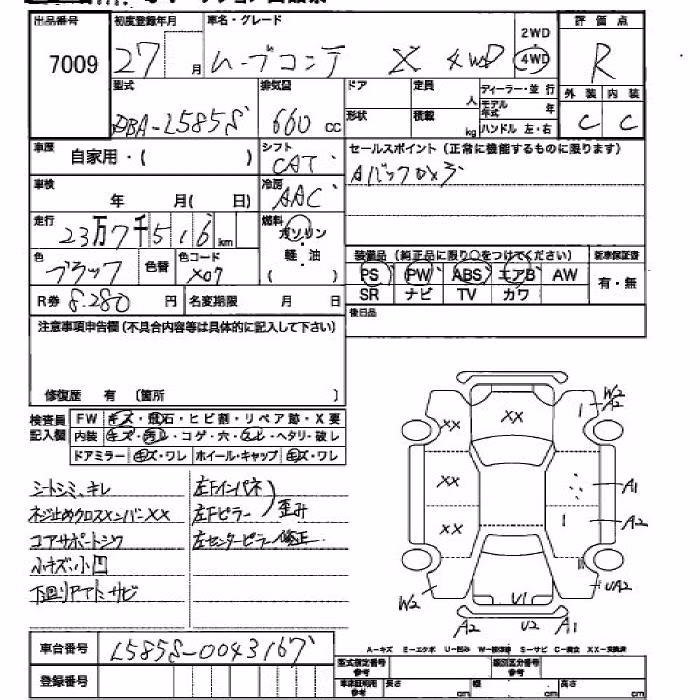 出品番号 初度登録年月 車名・グレード 2WD 評価点
7009 27 月 ムーブコンテ X 4WD 4WD R
型式 排気量 ドア 定員 人 ディーラー・並行 外装 内装
DBA-L585S 660 cc 形状 積載 kg モデル年式 年 C C
ハンドル 左・右
車歴 自家用・( ) シフト CAT セールスポイント(正常に機能するものに限ります)
車検 年 月( 日) 冷房 AAC Aバックカメラ
走行 23万7千516km 燃料 ガソリン・軽油 ( )
色 ブラック 色替 色コード X07
装備品(純正品に限り○をつけてください) 新車保証書
PS PW ABS エアB AW 有・無
SR ナビ TV カワ
R券 8.280 円 名変期限 月 日
後日品
注意事項申告欄(不具合内容等は具体的に記入して下さい)
修復歴 有 〔箇所 〕
検査員記入欄
FW キズ・飛石・ヒビ割・リペア跡・X要
内装 キズ・汚レ・コゲ・穴・スレ・ヘタリ・破レ
ドアミラー キズ・ワレ ホイール・キャップ キズ・ワレ
シートシミ、キレ 左Fインパネ
ネジ止めクロスメンバーXX 左Fピラー 歪み
コアサポートシワ 左センターピラー修正
小キズ、小凹
下廻りアト サビ
W2
A2
XX XX
XX A1
XX A2
W2 U1 UA2
A2 U2 A1
車台番号 L585S-0043167
A-キズ E-エクボ U-凹み W-補修跡 S-サビ C-腐食 XX-交換済
登録番号 型式指定番号 参考 類別区分番号 参考
車庫証明用 参考 長さ cm 幅 cm 高さ cm